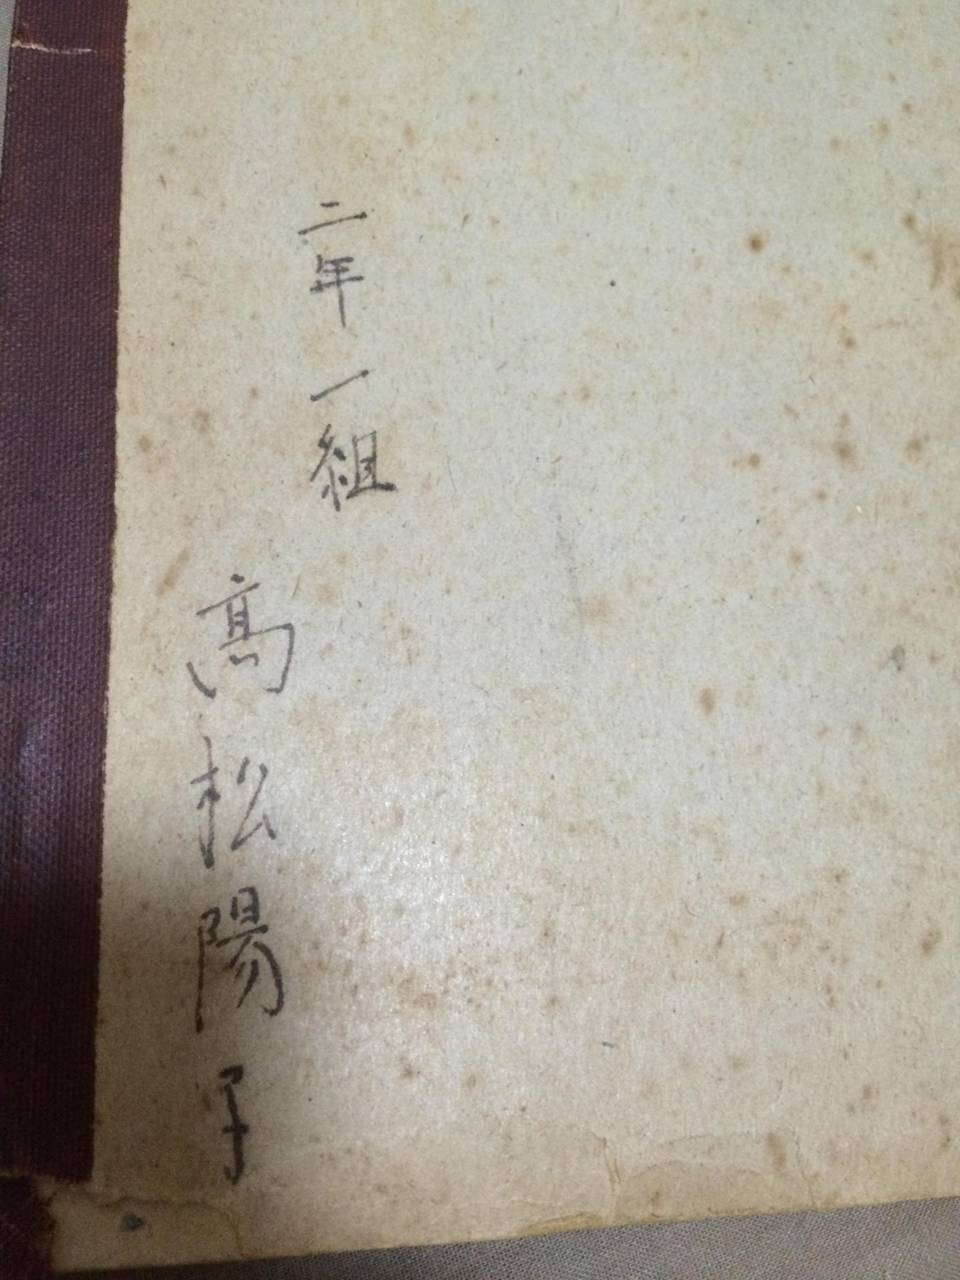 二年一組
髙松陽子